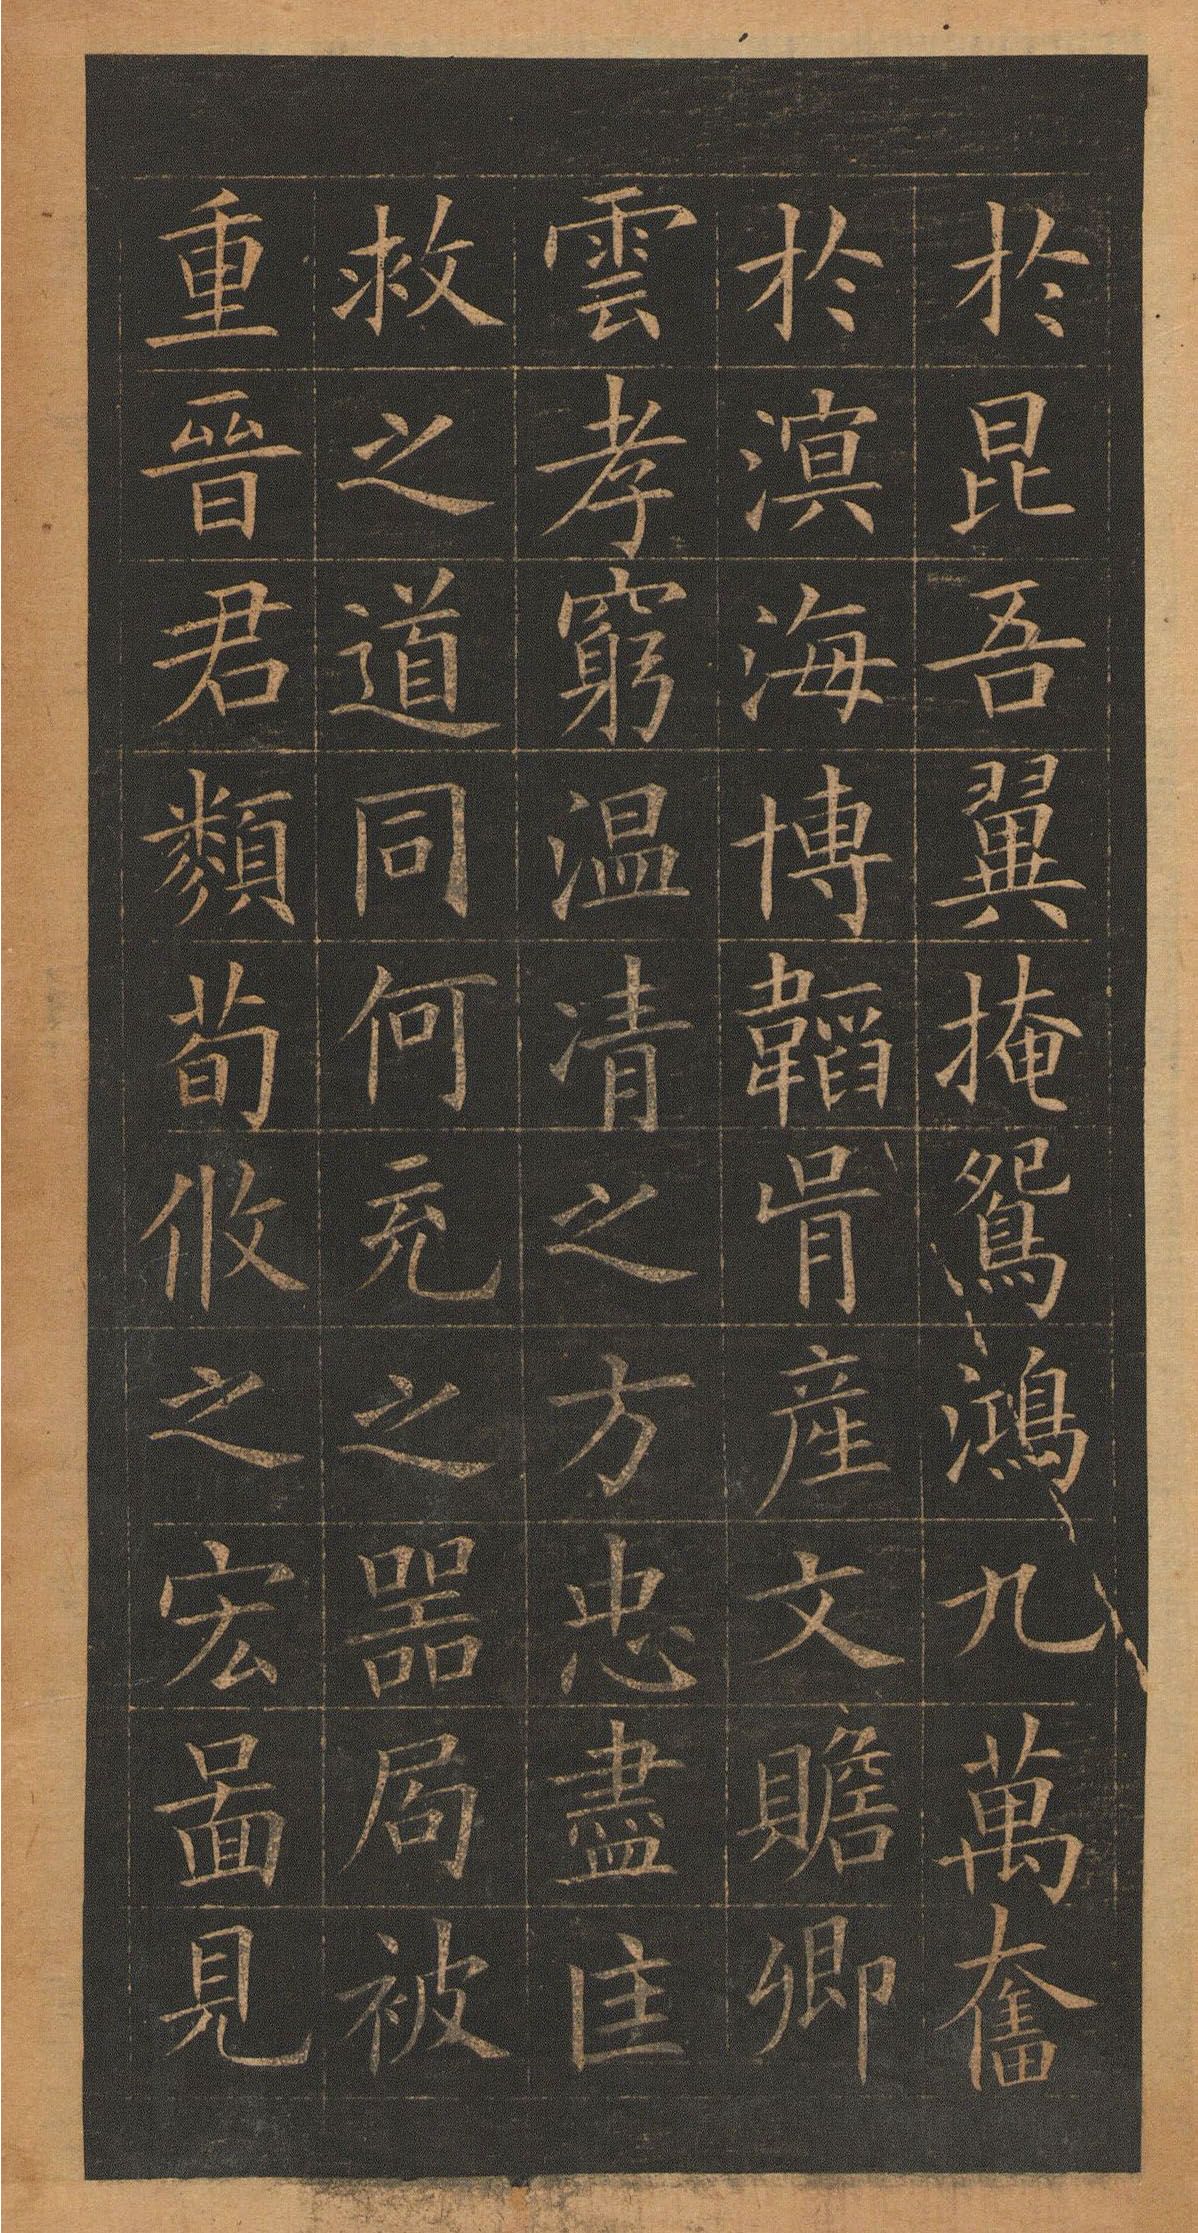 於昆吾翼掩鴛鴻九萬奮
於溟海博韜冑產文贍卿
雲孝窮温凊之方忠盡匡
救之道同何充之器局被
重晉君類荀攸之宏啚見